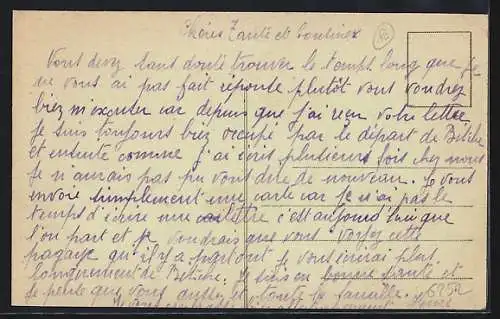 Chères Tante et Cousines
Vous devez sans doute trouver le temps long que je
ne vous ai pas fait réponse plutôt vous voudrez
bien m'excuser car depuis que j'ai reçu votre lettre
je suis toujours bien occupé par le départ de
et ensuite comme j'ai écris plusieurs fois chez nous
je n'aurais pas pu vous dire de nouveau. Je vous
envoie simplement une carte car je n'ai pas le
temps d'écrire une lettre c'est aujourd'hui que
l'on part et je voudrais que vous voyiez cette
pagaye qu'il y a partout je vous écrirai plus
longuement de Je suis en bonne santé et
je pense que vous aussi et toute la famille.
6252